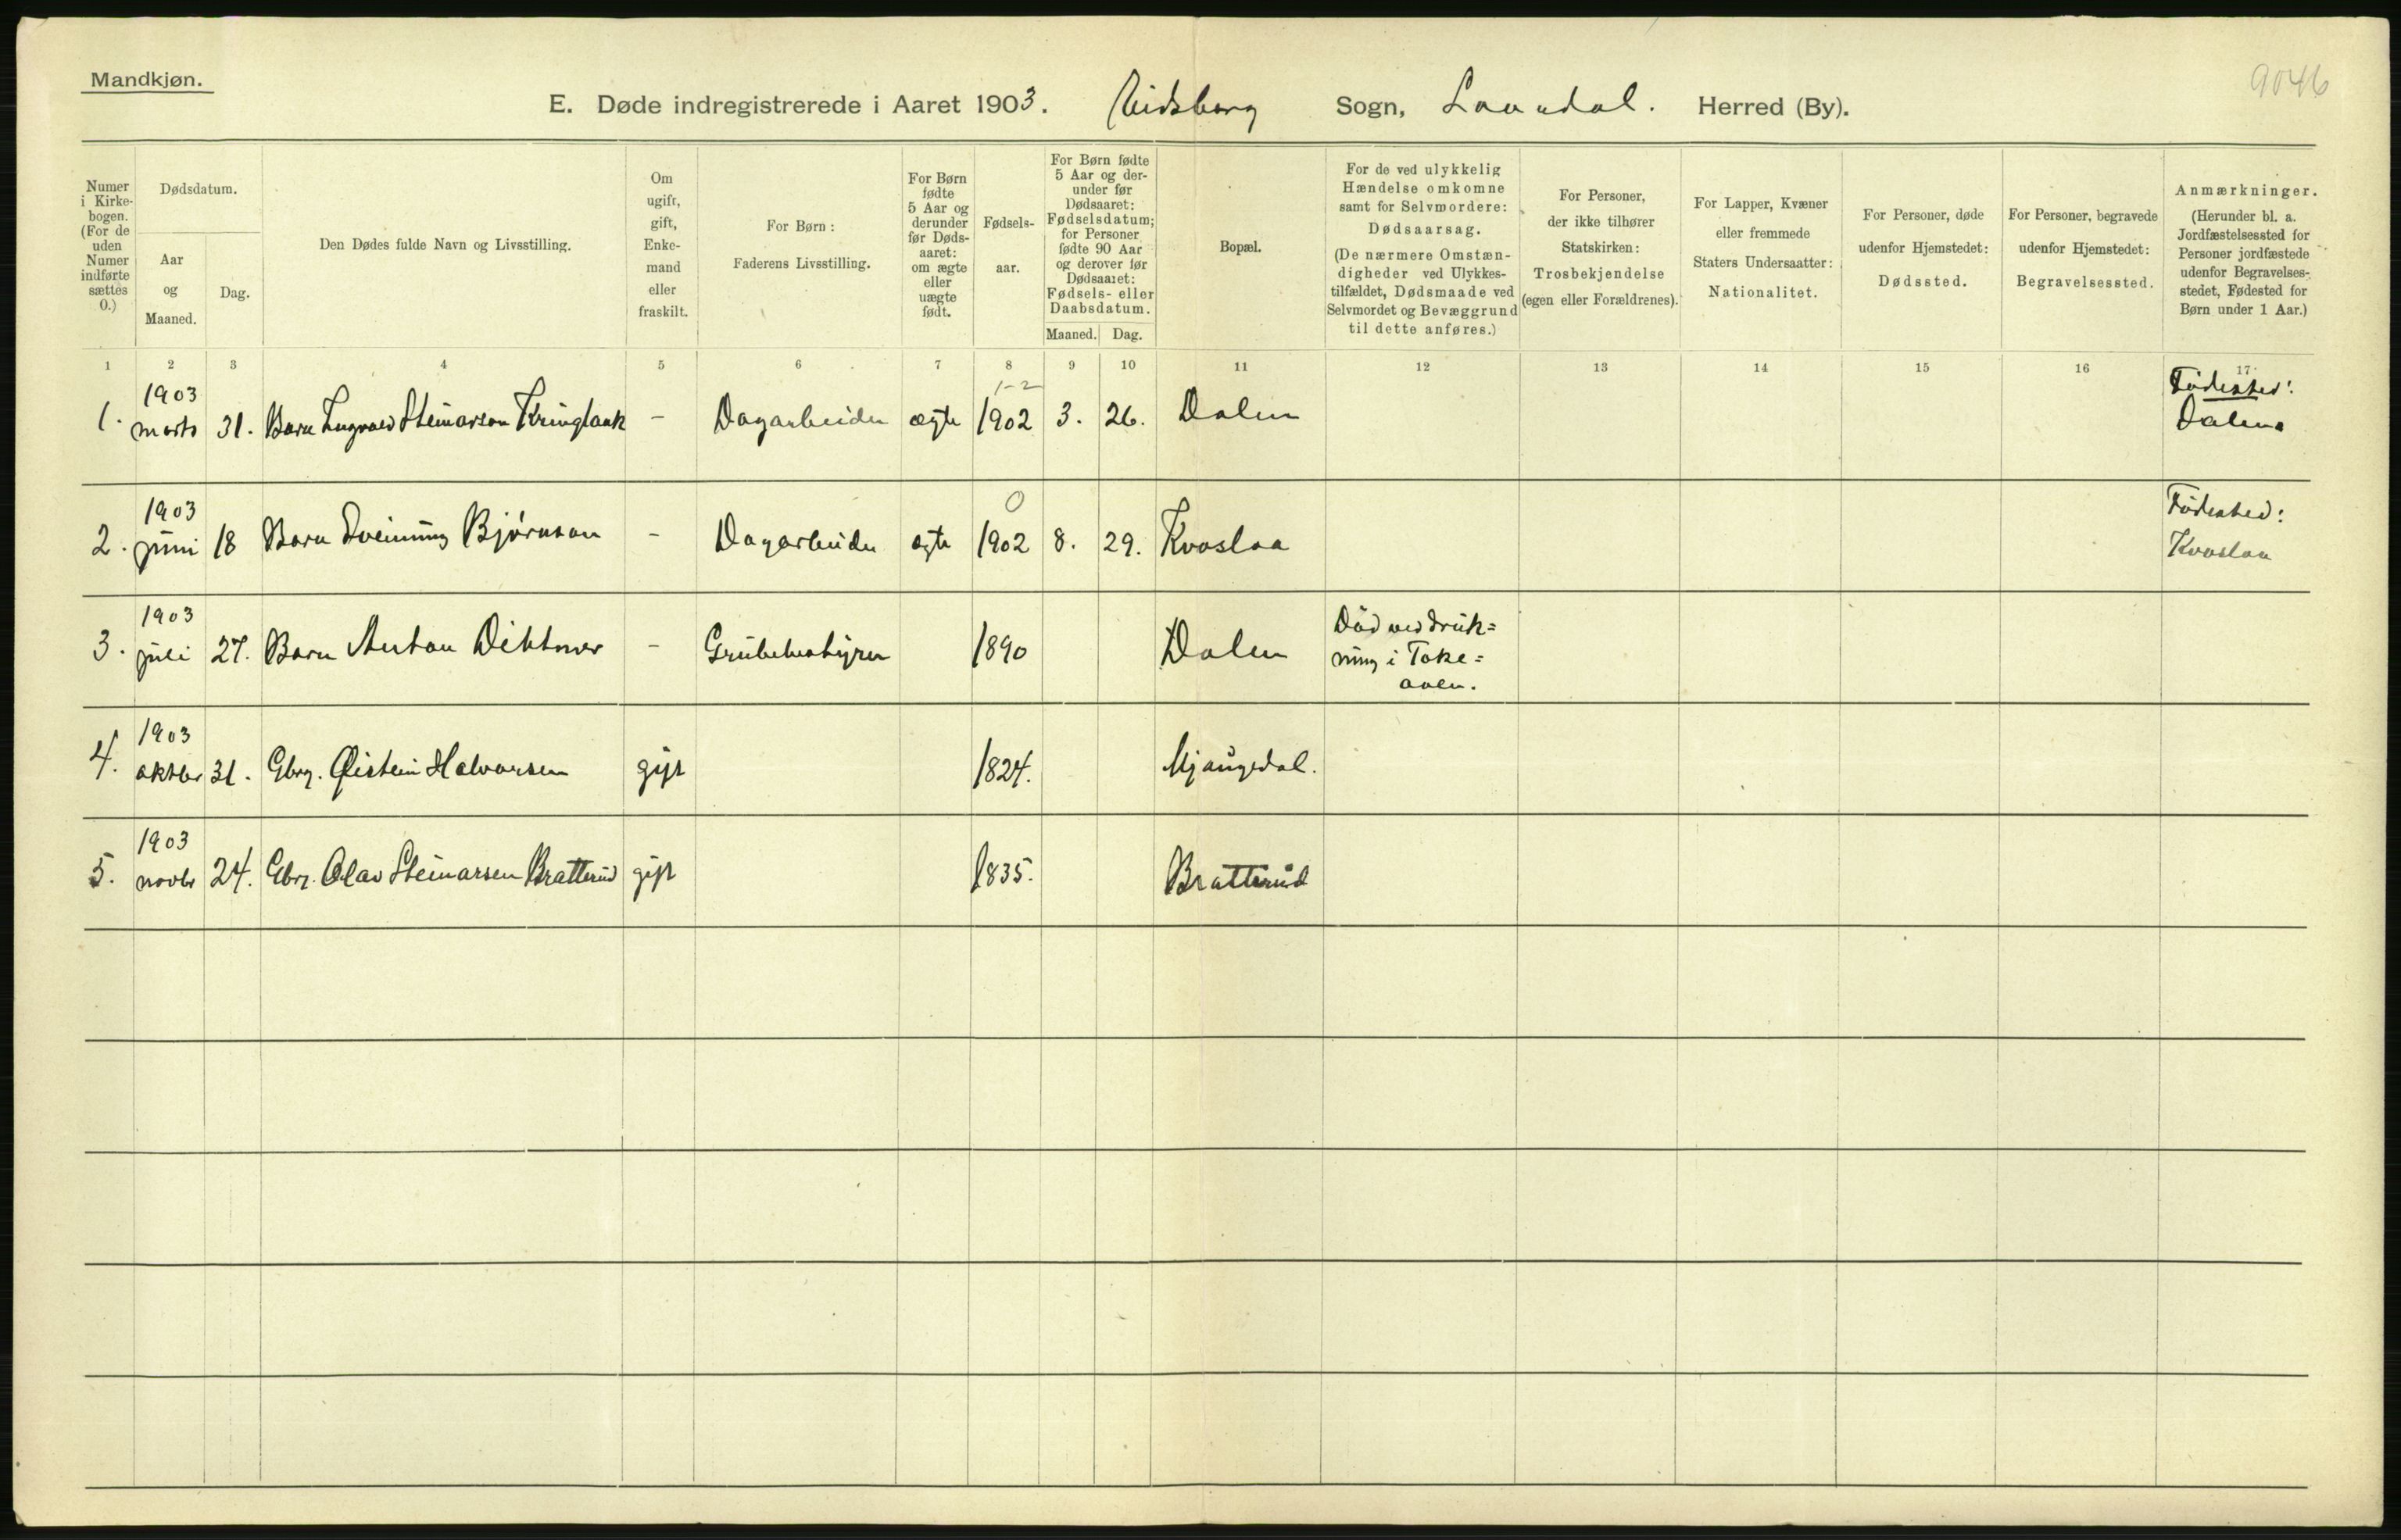 Mandkjøn.
9046
E. Døde indregistrerede i Aaret 1903. Eidsborg Sogn, Laurdal. Herred (By).
Numer i Kirke-bogen. (For de uden Numer indførte sættes 0.)
Dødsdatum.
Aar og Maaned.
Dag.
Den Dødes fulde Navn og Livsstilling.
Om ugift, gift, Enke-mand eller fraskilt.
For Børn:
Faderens Livsstilling.
For Børn fødte 5 Aar og derunder før Døds-aaret: om ægte eller uægte født.
Fødsels-aar.
For Børn fødte 5 Aar og der-under før Dødsaaret: Fødselsdatum; for Personer fødte 90 Aar og derover før Dødsaaret: Fødsels- eller Daabsdatum.
Maaned. Dag.
Bopæl.
For de ved ulykkelig Hændelse omkomne samt for Selvmordere: Dødsaarsag.
(De nærmere Omstæn-digheder ved Ulykkes-tilfældet, Dødsmaade ved Selvmordet og Bevæggrund til dette anføres.)
For Personer, der ikke tilhører Statskirken: Trosbekjendelse (egen eller Forældrenes).
For Lapper, Kvæner eller fremmede Staters Undersaatter: Nationalitet.
For Personer, døde udenfor Hjemstedet: Dødssted.
For Personer, begravede udenfor Hjemstedet: Begravelsessted.
Anmærkninger.
(Herunder bl. a. Jordfæstelsessted for Personer jordfæstede udenfor Begravelses-stedet, Fødested for Børn under 1 Aar.)
1 2 3 4 5 6 7 8 9 10 11 12 13 14 15 16 17
1. 1903 marts 31. Barn Ingvald Steinarson - Dagarbeider ægte 1-2 1902 3. 26. Dalen Fødested: Dalen
2. 1903 juni 18 Barn Sveinung Bjørnson - Dagarbeider ægte 0 1902 8. 29. Kvaslaa Fødested: Kvaslaa
3. 1903 juli 27. Barn Anton Dittmer - Grubebestyrer 1890 Dalen Død ved druk=
ning i Toke=
aaen.
4. 1903 oktbr 31. Gbrg. Øistein Halvorsen gift 1824. Mjaugedal.
5. 1903 novbr 24. Gbrg. Olav Steinarsen Bratterud gift 1835. Bratterud